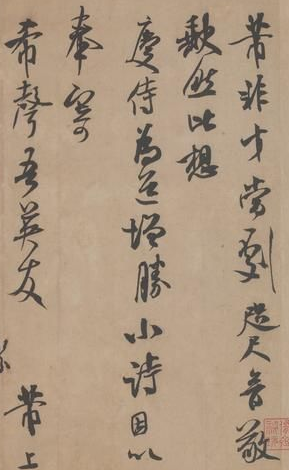 芾非才當劇咫尺音敬
歉然比想
慶侍為道增勝小詩因以
奉寄
希聲吾英友 芾上